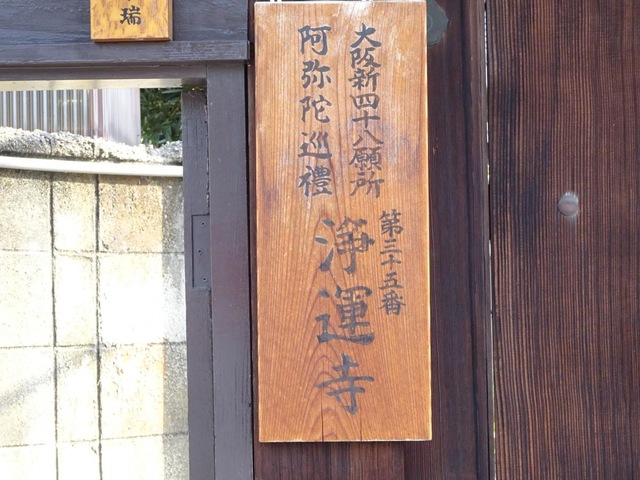 瑞
大阪新四十八願所
阿弥陀巡禮
第三十五番
浄運寺